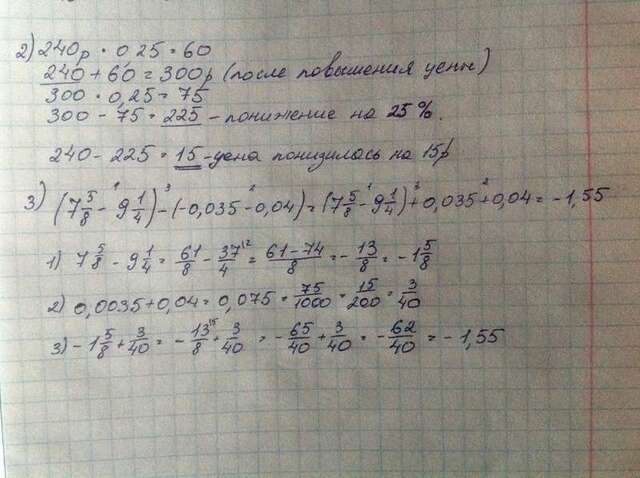 2) 240р · 0,25 = 60
240 + 60 = 300р (после повышения цены)
300 · 0,25 = 75
300 - 75 = 225 - понижение на 25%.
240 - 225 = 15 - цена понизилась на 15р
3) (7 5/8 - 9 1/4) - (-0,035 - 0,04) = (7 5/8 - 9 1/4) + 0,035 + 0,04 = -1,55
1) 7 5/8 - 9 1/4 = 61/8 - 37/4 = (61-74)/8 = -13/8 = -1 5/8
2) 0,0035 + 0,04 = 0,075 = 75/1000 = 15/200 = 3/40
3) -1 5/8 + 3/40 = -13/8 + 3/40 = -65/40 + 3/40 = -62/40 = -1,55